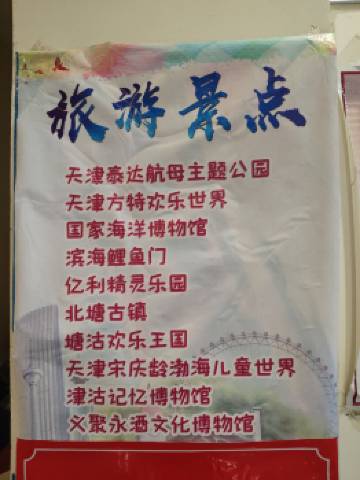 旅游景点
天津泰达航母主题公园
天津方特欢乐世界
国家海洋博物馆
滨海鲤鱼门
亿利精灵乐园
北塘古镇
塘沽欢乐王国
天津宋庆龄渤海儿童世界
津沽记忆博物馆
义聚永酒文化博物馆